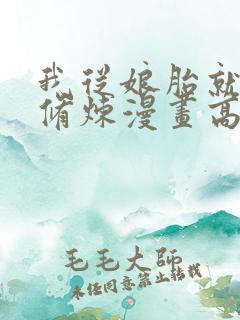 我從娘胎就
脩煉漫畫高
毛毛大師
未任同意禁止轉載